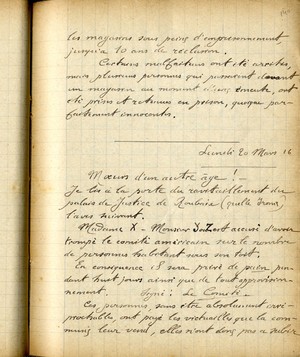 les magasins sous peine d'emprisonnement
jusqu'à 10 ans de réclusion.
Certains malfaiteurs ont été arrêtés,
mais plusieurs personnes qui passaient devant
un magasin au moment d'une émeute, ont
été prises et retenues en prison, quoique par-
faitement innocentes.
Lundi 20 Mars 16
Mœurs d'un autre âge ! —
Je lis à la porte du ravitaillement du
palais de Justice de Roubaix (quelle ironie)
l'avis suivant.
Madame X - Monsieur accusé d'avoir
trompé le comité américain sur le nombre
de personnes habitant sous son toit.
En conséquence il sera privé de pain pen-
dant huit jours ainsi que de tout approvision-
nement. Signé : Le Comité.
Ces personnes, sans être absolument irré-
prochables, ont payé les victuailles que la com-
mune leur vend, elles n'ont donc pas à subir